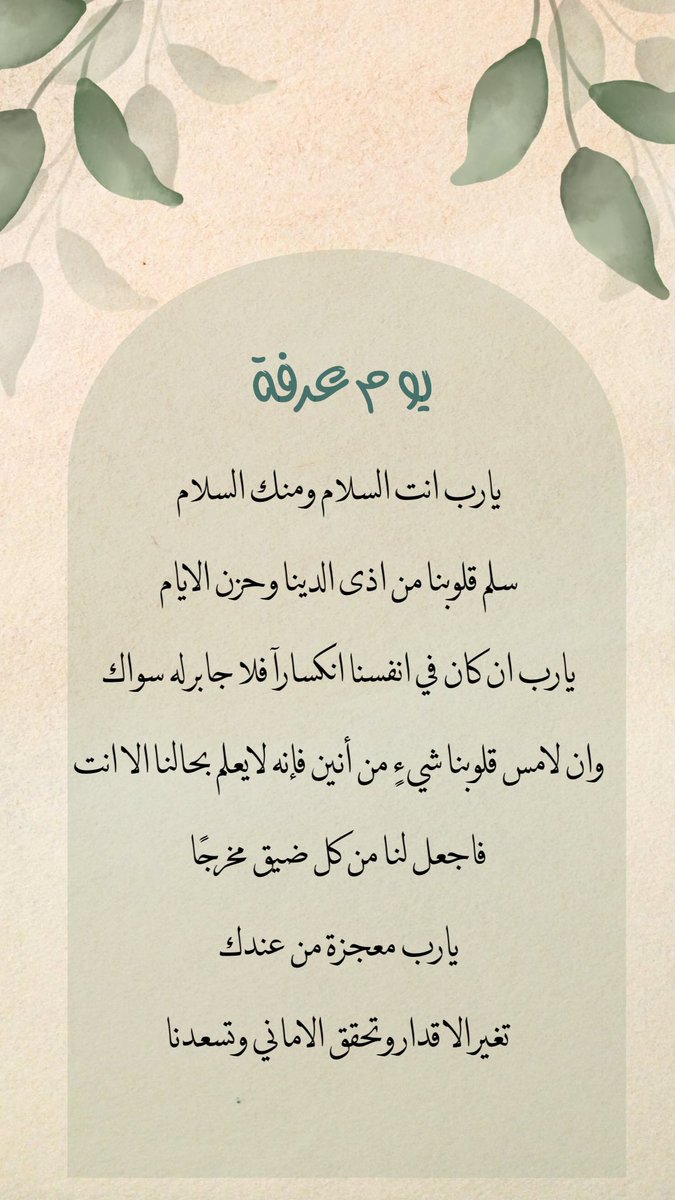 يوم عرفة
يارب انت السلام ومنك السلام
سلم قلوبنا من اذى الدينا وحزن الايام
يارب ان كان في انفسنا انكسارآ فلا جابر له سواك
وان لامس قلوبنا شيءٍ من أنين فإنه لايعلم بحالنا الا انت
فاجعل لنا من كل ضيق مخرجًا
يارب معجزة من عندك
تغير الاقدار وتحقق الاماني وتسعدنا